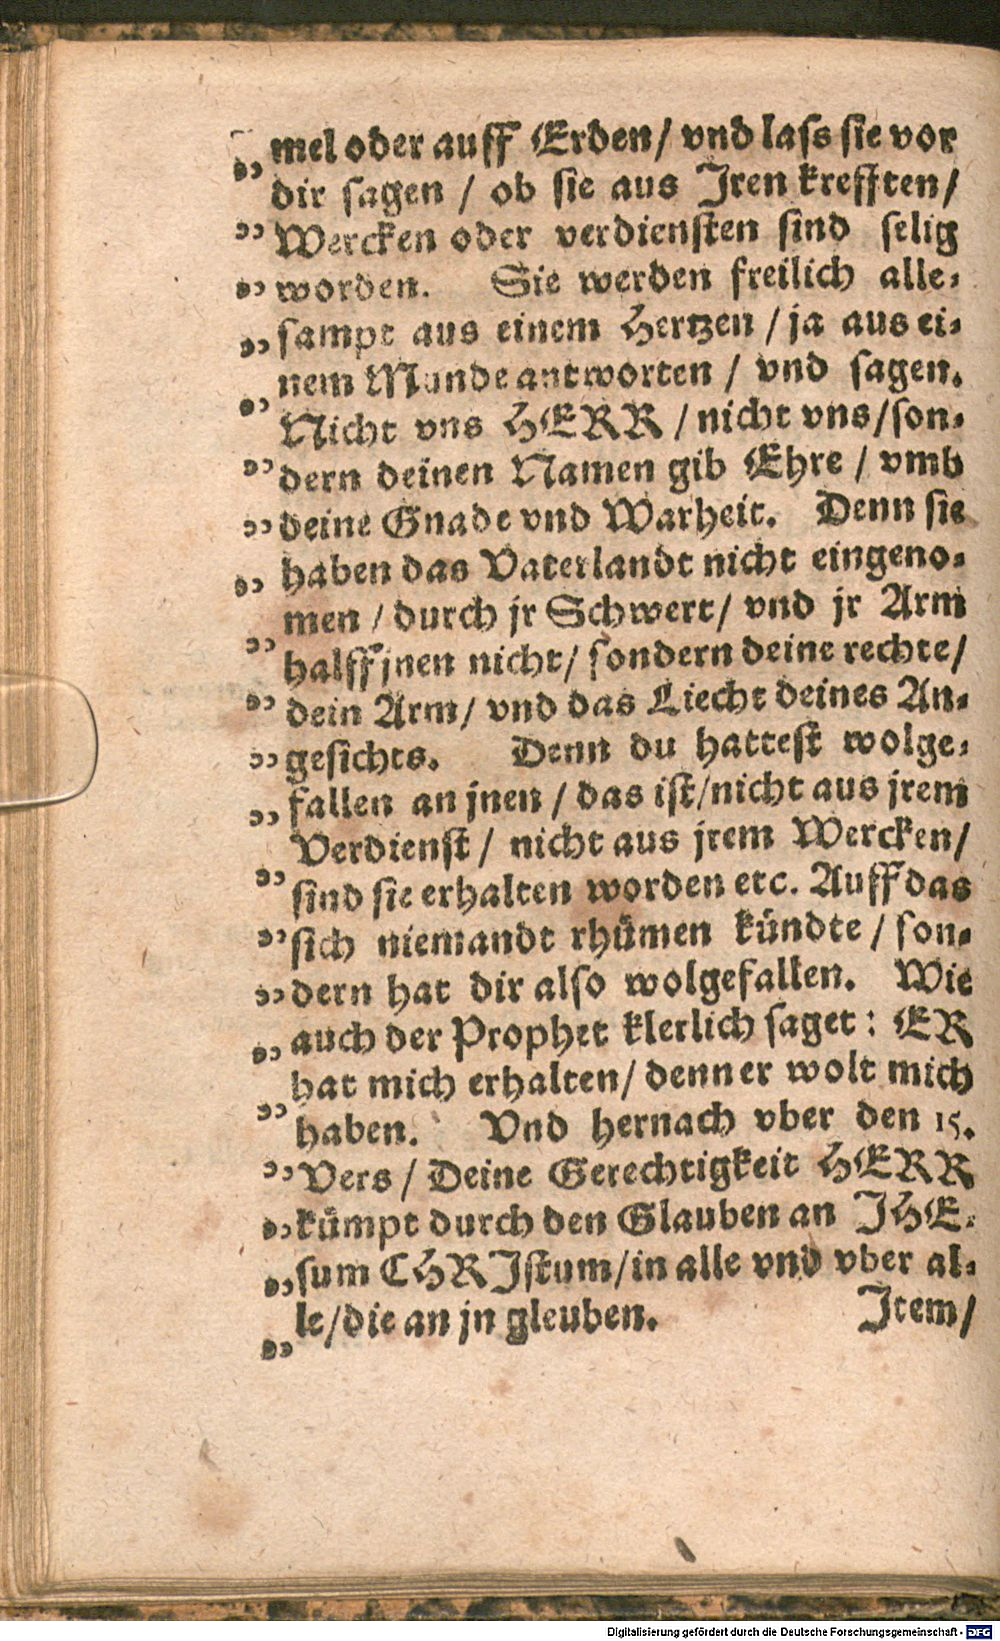 mel oder auff Erden / vnd lass sie vor
„ dir sagen / ob sie aus Jren krefften /
„ Wercken oder verdiensten sind selig
„ worden. Sie werden freilich alle-
„ sampt aus einem Hertzen / ja aus ei-
nem Munde antworten / vnd sagen.
„ Nicht vns HERR / nicht vns / son-
„ dern deinen Namen gib Ehre / vmb
„ deine Gnade vnd Warheit. Denn sie
„ haben das Vaterlandt nicht eingeno-
men / durch jr Schwert / vnd jr Arm
„ halff jnen nicht / sondern deine rechte /
„ dein Arm / vnd das Liecht deines An-
„ gesichts. Denn du hattest wolge-
„ fallen an jnen / das ist / nicht aus jrem
Verdienst / nicht aus jrem Wercken /
„ sind sie erhalten worden etc. Auff das
„ sich niemandt rhümen kündte / son-
„ dern hat dir also wolgefallen. Wie
„ auch der Prophet klerlich saget : ER
hat mich erhalten / denn er wolt mich
„ haben. Vnd hernach vber den 15.
„ Vers / Deine Gerechtigkeit HERR
„ kümpt durch den Glauben an JHE-
„ sum CHRJstum / in alle vnd vber al-
„ le / die an jn gleuben. Jtem /
Digitalisierung gefördert durch die Deutsche Forschungsgemeinschaft - DFG